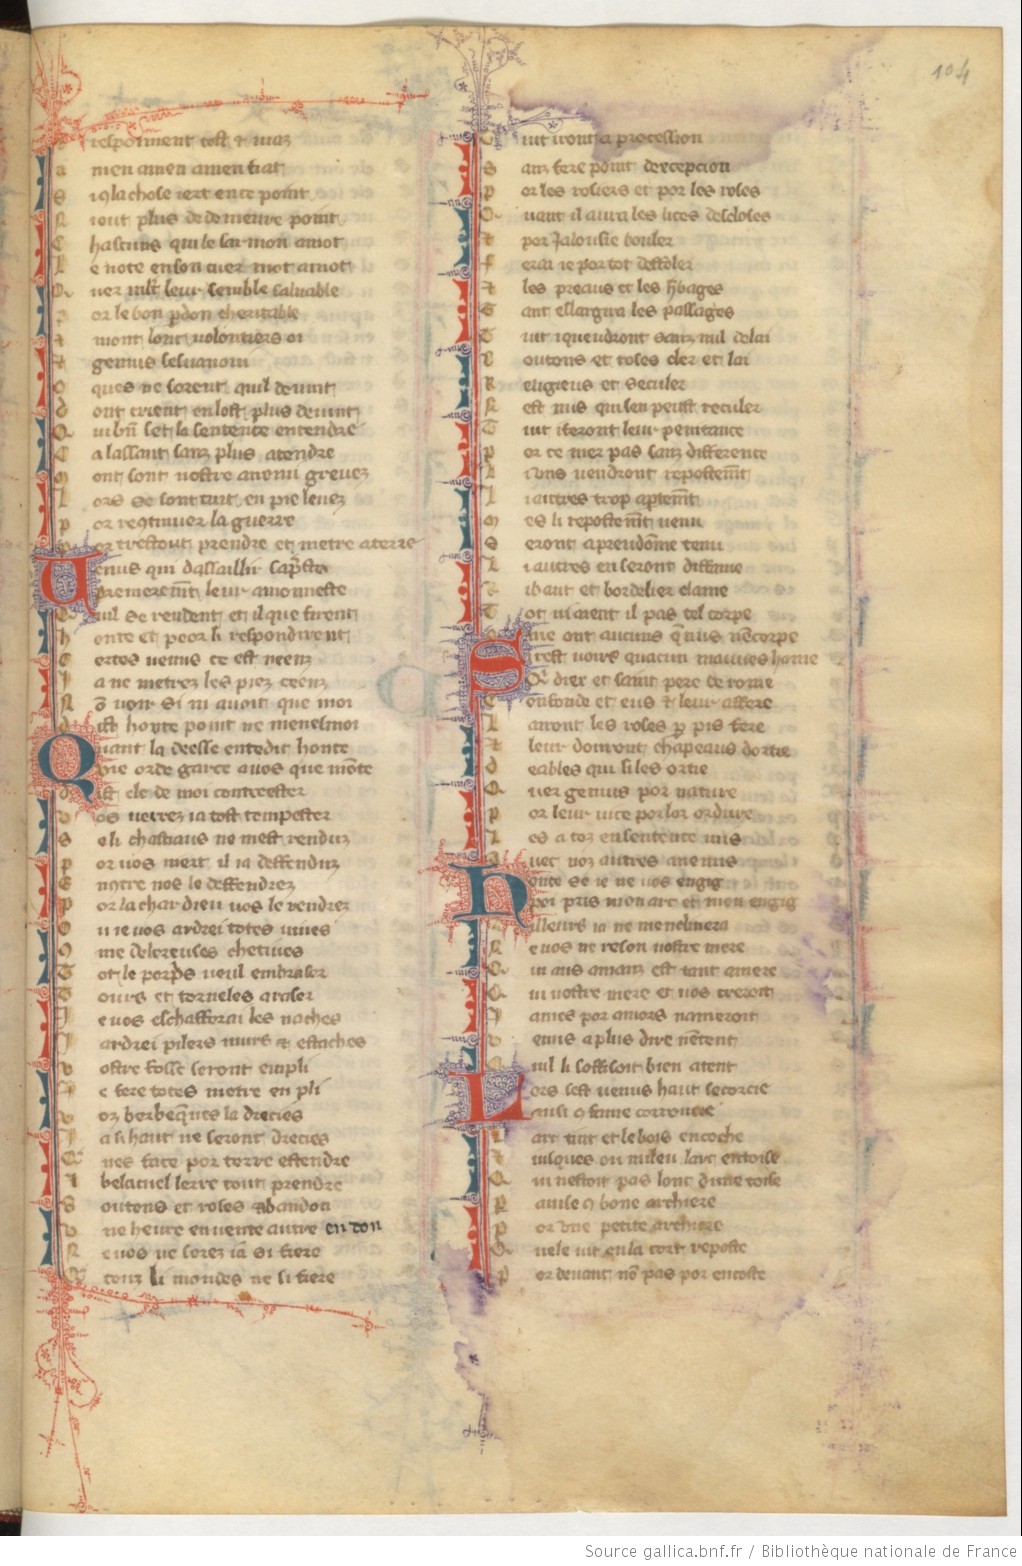 104
respoinnent tost et viaz
Amen amen fiat fiat
Siq la chose iert en ce point
Ni out plus de demeure point
Chascuns qui le sarmon amot
Le note en son cuer mot a mot
Quer mlt leur semble saluable
Por le bon pdon cheritable
et mont lont volontiers oi
et genius seuanoui
Onques ne sorent quil deuint
dont crient en lost plus de uint
Qui bn set la sentence entendre
Or a lassaut sanz plus atendre
mont sont nostre anemi greuez
Lors se sont tuit en pie leuez
por reqtinuer la guerre
por trestout prendre et metre a terre
Uenus qui dassaillir est preste
premierement leur amoneste
Quil se rendent et il que firent
honte et peor li respondirent
Certes uenus ce est neenz
Ja ne metrez les piez ceenz
Non uoir si ni auoit que moi
dist honte point ne menesmoi
Quant la deesse entedit honte
Uie orde garce a uos que monte
dist ele de moi contrester
Uos uerrez ia tost tempester
Se li chastiaus ne mest renduz
por uos niert il ia deffenduz
Encontre nos le deffendrez
por la char dieu uos le rendrez
Ou ie uos ardrei totes uiues
Comme dolereuses chetiues
Tot le porpris ueul embraser
Tours et torneles araser
Je uos eschafferai les naches
Jardrei pilers murs et estaches
Uostre fosse seront empli
Je fere totes metre en pli
Uoz berbeqnes la drecies
Ja si haut ne seront drecies
Que nes face por terre estendre
Et belacuel lerra tout prendre
Boutons et roses abandon
Une heure en uente autre en don
Ne uos ne serez ia si fiere
Que touz li mondes ne si fiere
Tuit iront a procession
Sanz fere point dexcepcion
por les rosiers et por les roses
Quant il aura les lices descloses
et por Jalousie bouler
ferai ie por tot deffoler
et les preaus et les hbages
Tant eslargira les passages
Tuit i queudront sanz nul delai
Boutons et roses cler et lai
Religieus et seculer
Nest nus qui sen peust reculer
Tuit i feront leur penitance
por ce nier pas sanz difference
Li uns uendront repostemt
Li autres trop apertemt
mes li repostemt uenu
Seront a preudome tenu
Li autres en seront diffame
Ribaut et bordelier clame
Tot ni aient il pas tel corpe
Que ont aucuns que nus nencorpe
Si rest uoirs quaucun mauues home
Que diex et saint pere de rome
Confonde et eus et leur affere
Leront les roses por pis fere
et leur donront chapeaus dortie
deables qui si les ortie
Quer genius por nature
por leur uice por lor ordure
Les a toz en sentence mis
Auec noz autres anemis
Honte se ie ne uos engig
poi pris mon arc et mon engig
Ailleurs ia ne men clinera
Ne uos ne reson uostre mere
Qui aus amanz est tant amere
Qui uostre mere et uos creroit
James por amors nameroit
Uenus a plus dire nentent
Quil li soffisoit bien atent
Lors sest uenus haut secorcie
Bien sembla fame corroucie
Larc tint et le bois encoche
et iusques ou mileu larc entoise
Qui nestoit pas lonc dune toise
Puis auise q bone archiere
por une petite archiere
Quele uit en la tort reposte
por deuant non pas por encoste